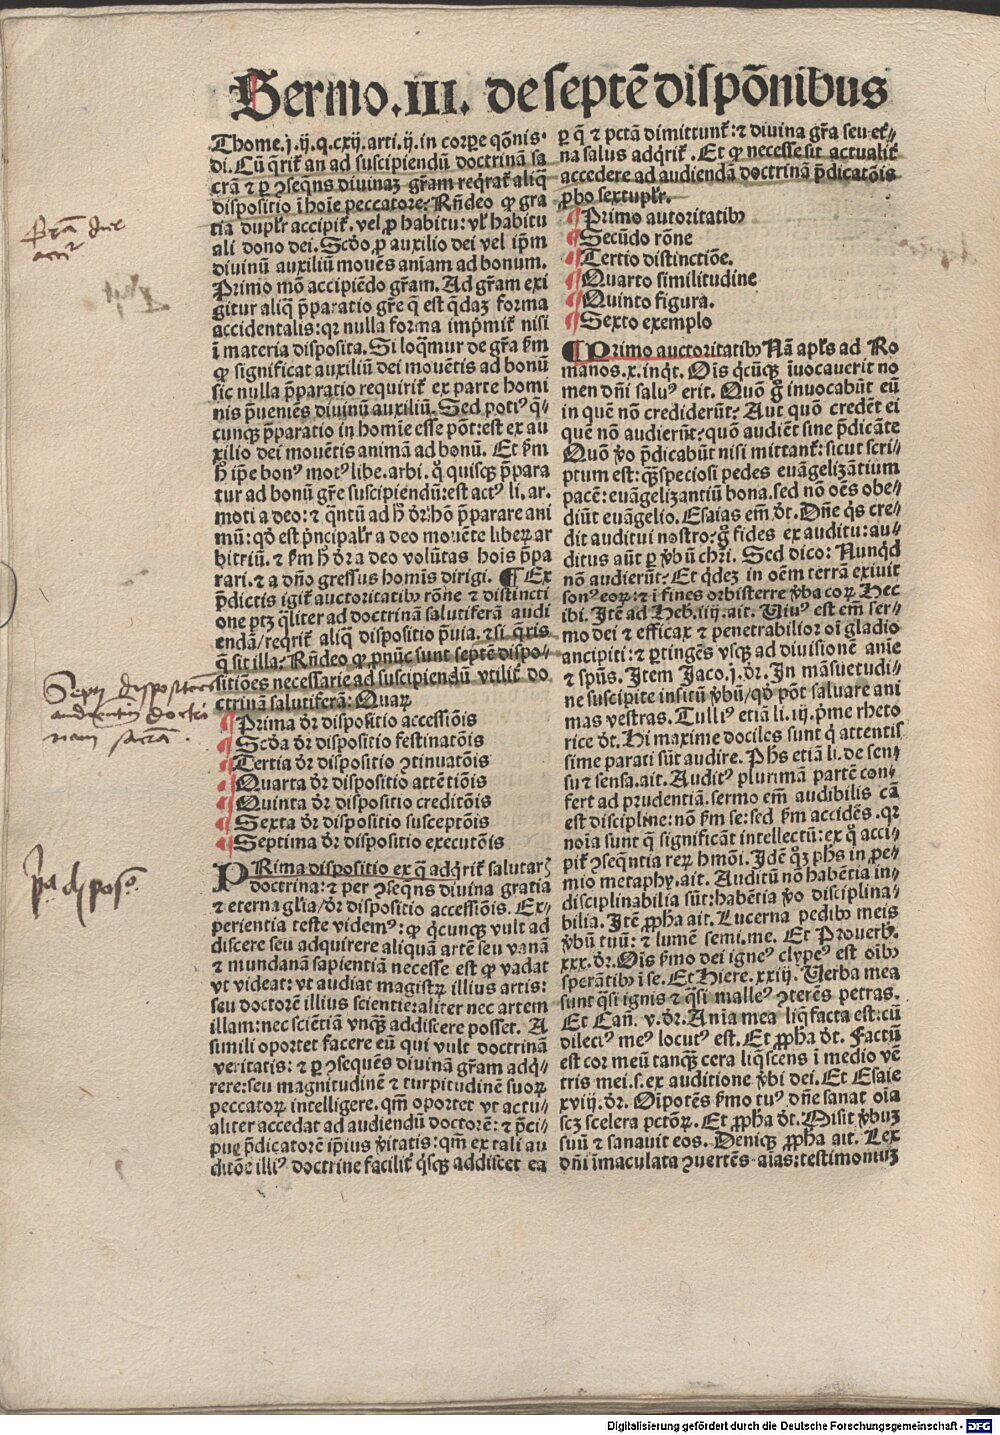 Sermo .III. de septē dispōnibus
Thome .j. ij. q. cxij. arti. ij. in corpe qōnis.
di. Cū q̄rit̄ an ad suscipiendū doctrinā sa
crā ⁊ ꝑ ꝯseqns divinaꝫ gr̄am reqrat̄ aliq̄
dispositio ī hoīe peccatore? Rn̄deo ꝙ gra
tia duplr̄ accipit̄. vel ꝓ habitu: vl' habitu
ali dono dei. Scḋo ꝓ auxilio dei vel ip̄m
divinū auxiliū mouēs aniam ad bonum.
Primo mō accipiēdo gr̄am. Ad gr̄am exi
gitur aliq̄ p̄paratio gr̄e q̄ est q̄daꝫ forma
accidentalis: qr nulla forma imp̄mit̄ nisi
ī materia disposita. Si loq̄mur de gr̄a ẜm
ꝙ significat auxiliū dei mouētis ad bonū
sic nulla p̄paratio requirit̄ ex parte homi
nis p̄ueniēs diuinū auxiliū. Sed potiꝰ q̄
cunqꝫ p̄paratio in homīe esse pōt: est ex au
xilio dei mouētis animā ad bonū. Et ẜm
h̄ ip̄e bonꝰ motꝰ libe. arbi. q̊ quisqꝫ p̄para
tur ad bonū gr̄e suscipiendū: est actꝰ li. ar.
moti a deo: ⁊ q̄ntū ad h̄ dr̄: hō p̄parare ani
mū: qḋ est p̄ncipalr̄ a deo mouēte liberꝝ ar
bitriū. ⁊ ẜm h̄ dr̄a deo volūtas hoīs p̄pa
rari. ⁊ a dn̄o gressus homīs dirigi. ¶ Ex
p̄dictis igit̄ auctoritatibꝫ rōne ⁊ distincti
one ptꝫ q̄liter ad doctrinā salutiferā audi
endā/ reqrit̄ aliq̄ dispositio p̄uia. ⁊ si q̄ris
q̄ sit illa? Rn̄deo ꝙ p̄nūc sunt septē dispo⸗
sitiōes necessarie ad suscipiendū vtilit̄ do
ctrinā salutiferā: Quaꝝ
¶ Prima dr̄ dispositio accessiōis
¶ Scḋa dr̄ dispositio festinatōis
¶ Tertia dr̄ dispositio ꝯtinuatōis
¶ Quarta dr̄ dispositio attētiōis
¶ Quinta dr̄ dispositio creditōis
¶ Sexta dr̄ dispositio susceptōis
¶ Septima dr̄ dispositio executōis
PRima dispositio ex q̄ adq̄rit̄ salutarꝫ
doctrina: ⁊ per ꝯseqns divina gratia
⁊ eterna glīa/ dr̄ dispositio accessiōis. Ex⸗
perientia teste videmꝰ: ꝙ q̄cunqꝫ vult ad
discere seu adquirere aliquā artē seu vanā
⁊ mundanā sapientiā necesse est ꝙ vadat
vt videat: vt audiat magistꝝ illius artis:
seu doctorē illius scientie: aliter nec artem
illam: nec sciētiā vnqꝫ addiscere posset. A
simili oportet facere eū qui vult doctrinā
veritatis: ⁊ ꝑ ꝯsequēs divinā gr̄am adq̄⸗
rere: seu magnitudinē ⁊ turpitudinē suoꝝ
peccatoꝝ intelligere. qm̄ oportet vt actu⸗
aliter accedat ad audiendū doctorē: ⁊ p̄ci⸗
pue p̄dicatorē ip̄ius v̄itatis: qm̄ ex tali au
ditōe illiꝰ doctrine facilit̄ q̄sqꝫ addiscet ea
ꝑ q̄ ⁊ pctā dimittunt̄: ⁊ divina gr̄a seu et̄⸗
na salus adq̄rit̄. Et ꝙ necesse sit actualit̄
accedere ad audiendā doctrinā p̄dicatōis
ꝓbo sextuplr̄.
¶ Primo autoritatibꝫ
¶ Secūdo rōne
¶ Tertio distinctiōe.
¶ Quarto similitudine
¶ Quinto figura.
¶ Sexto exemplo
¶ Primo auctoritatibꝫ Nā apl's ad Ro
manos. x. inqt. Oīs q̄cūqꝫ īuocauerit no
men dn̄i saluꝰ erit. Quō g̊ inuocabūt eū
in quē nō crediderūt? Aut quō credēt ei
quē nō audierūt? quō audiēt sine p̄dicāte
Quō v̊o p̄dicabūt nisi mittant̄: sicut scri⸗
ptum est: q̄ꝫ speciosi pedes euāgelizātium
pacē: euāgelizantiū bona. sed nō oēs obe⸗
diūt euāgelio. Esaias em̄ dt̄. Dn̄e q̇s cre⸗
dit auditui nostro? g̊ fides ex auditu: au⸗
ditus aūt ꝑ v̄bū chr̄i. Sed dico: Nunqd
nō audierūt? Et q̇dez in oēm terrā exiuit
sonꝰ eoꝝ: ⁊ ī fines orbisterre v̄ba coꝝ Hec
ibi. Itē ad Heb. iiij. ait. Viuꝰ est em̄ ser⸗
mo dei ⁊ efficax ⁊ penetrabilior oī gladio
ancipiti: ⁊ ꝑtingēs vsqꝫ ad diuisionē anīe
⁊ spūs. Item Jaco. j. dr̄. In māsuetudi⸗
ne suscipite insitū v̄bū/ qḋ pōt saluare ani
mas vestras. Tulliꝰ etiā li. iij. p̄me rheto
rice dt̄. Hi maxime dociles sunt q̄ attentis
sime parati sūt audire. Ph̄s etiā li. de sen⸗
su ⁊ sensa. ait. Auditꝰ plurimā partē con⸗
fert ad prudentiā. sermo em̄ audibilis cā
est discipline: nō ẜm se: sed ẜm accidēs. qr
noīa sunt q̄ significāt intellectū: ex q̊ acci⸗
pit̄ ꝯseq̄ntia reꝝ hm̄ōi. Idē q̊ꝫ ph̄s in pe⸗
mio metaphy. ait. Auditū nō habētia in⸗
disciplinabilia sūt: habētia v̊o disciplina⸗
bilia. Itē ꝓph̄a ait. Lucerna pedibꝫ meis
v̄bū tuū: ⁊ lumē semi. me. Et Prouerb.
xxx. dr̄. Oīs ẜmo dei ignēꝰ clypeꝰ est oībꝫ
sperātibꝫ ī se. Et Hiere. xxiij. Verba mea
sunt q̄si ignis ⁊ q̄si malleꝰ ꝯterēs petras.
Et Cañ. v. dr̄. Anīa mea liq̄facta est: cū
dilectꝰ meꝰ locutꝰ est. Et ꝓph̄a dt̄. Factū
est cor meū tanqꝫ cera liq̄scens ī medio vē
tris mei. s. ex auditione v̄bi dei. Et Esaie
xviij. dr̄. Oīpotēs ẜmo tuꝰ dn̄e sanat oīa
scꝫ scelera pctōꝝ. Et ꝓph̄a dt̄. Misit v̄buꝫ
suū ⁊ sanauit eos. Deniqꝫ ꝓph̄a ait. Lex
dn̄i īmaculata ꝯuertēs aīas: testimoniuꝫ
Septē dispositiones
audientiū doctri
nam sacrā.
pa disposo
Digitalisierung gefördert durch die Deutsche Forschungsgemeinschaft - DFG